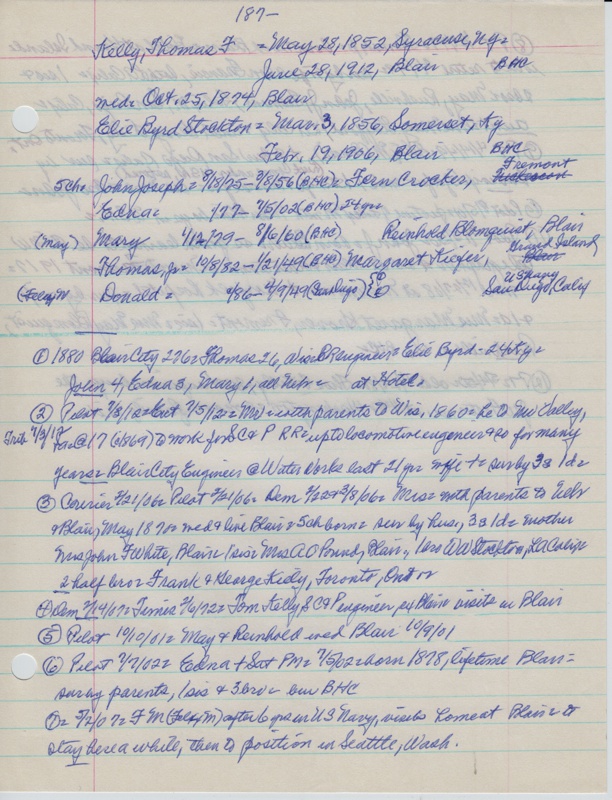 187-
Kelly, Thomas F = May 28, 1852, Syracuse, Ny =
June 28, 1912, Blair BHC
med = Oct. 25, 1874, Blair
Elie Byrd Stockton = Mar. 3, 1856, Somerset, Ky
Febr. 19, 1906, Blair BHC
Fremont
5 ch = John Joseph = 8/18/75 - 3/8/56 (BHC) = Fern Crocker,
Edna = 1/77 - 7/5/02 (BHC) 24 yrs
(May) Mary 4/12/79 - 8/6/60 (BHC) Reinhold Blomquist, Blair
Thomas, jr = 10/8/82 - 1/21/49 (BHC) Margaret Kiefer, Grand Island,
US Navy
Donald = /86 - 4/9/49 (San Diego) San Diego, Calif
① 1880 Blair City 276 = Thomas 26, engineer = Elie Byrd - 24 Ky =
John 4, Edna 3, Mary 1, all Nebr = at Hotel
② Pilot 7/3/12 = 7/5/12 = with parents to Wis, 1860 = he to Mo Valley,
Trib 7/3/12 Ia = @ 17 (1869) to work for SC & P RR = up to locomotive engineer = so for many
years = Blair City Engineer @ Water Works last 21 yr = wife + = sur by 3s 1d =
③ Courier 2/21/06 = Pilot 2/21/06 = Dem 2/22 & 3/8/06 = Mrs = with parents to Nebr
& Blair, May 1870 = med & live Blair = 5 ch born = surv by hus, 3s 1d = mother
Mrs John F White, Blair = 1 sis = Mrs A O Pound, Blair, 1 bro W W Stockton, LA Calif =
2 half bro = Frank & George Kidy, Toronto, Ont
④ Dem 3/14/07 = Times 3/6/72 = Tom Kelly, SC & P engineer, ex Blair visits in Blair
⑤ Pilot 10/10/01 = May & Reinhold wed Blair 10/9/01
⑥ Pilot 7/7/02 = Edna + Sat PM = 7/5/02 = born 1878, lifetime Blair =
surv by parents, 1 sis & 3 bro = bur BHC
⑦ = 5/2/07 = F M after 6 yrs in US Navy, visits home at Blair = to
stay here a while, then to position in Seattle, Wash.